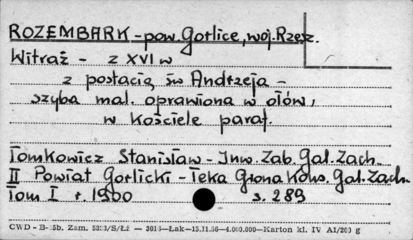 ROZEMBARK - pow. Gorlice, woj. Rzesz.
Witraż - z XVI w
z postacią św Andrzeja -
szyba mal. oprawiona w ołów,
w Kościele paraf.
Tomkowicz Stanisław - Inw. Zab. Gal. Zach.
II Powiat Gorlicki - Teka Grona Kons. Gal. Zach.
Tom I r. 1900 s. 289
CWD - B- Zam. Łak-15.11.56-4.000.000-Karton kl. IV A1/200 g